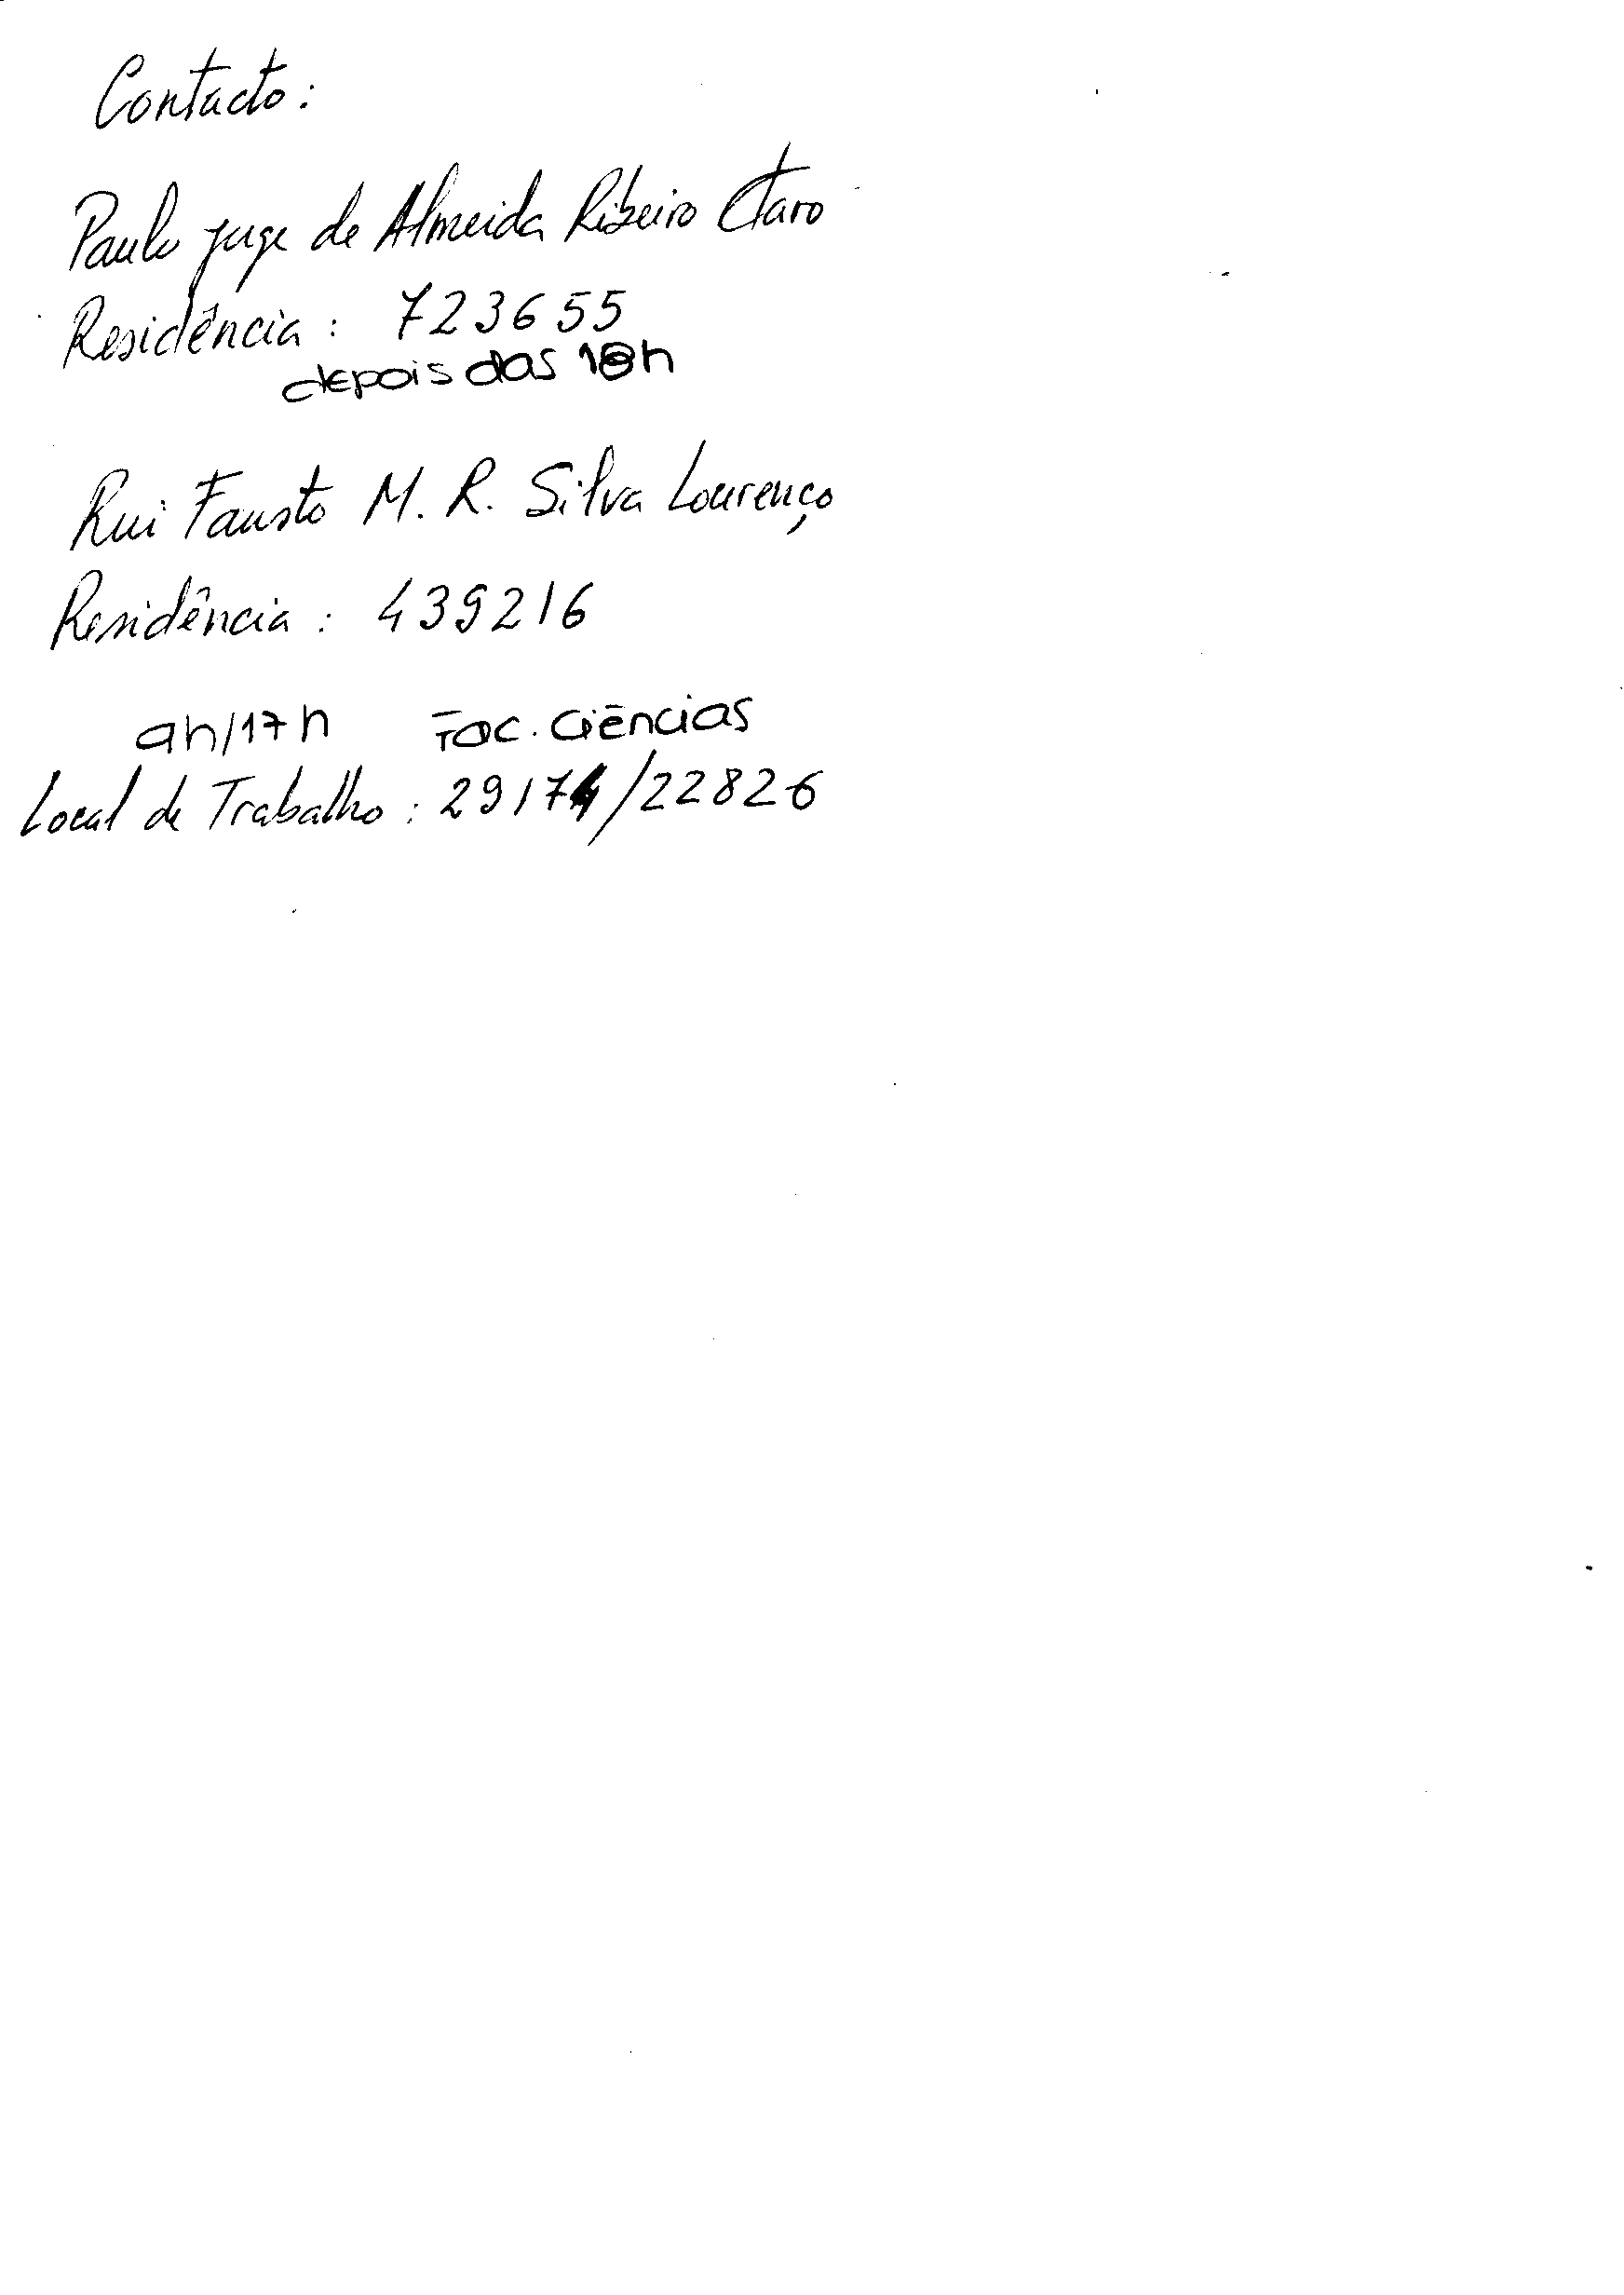 Contacto:
Paulo Jorge de Almeida Ribeiro Claro
Residência: 723655
depois das 18h
Rui Fausto M. R. Silva Lourenço
Residência: 439216
9h/17h Fac. Ciências
Local de Trabalho: 29174/22826